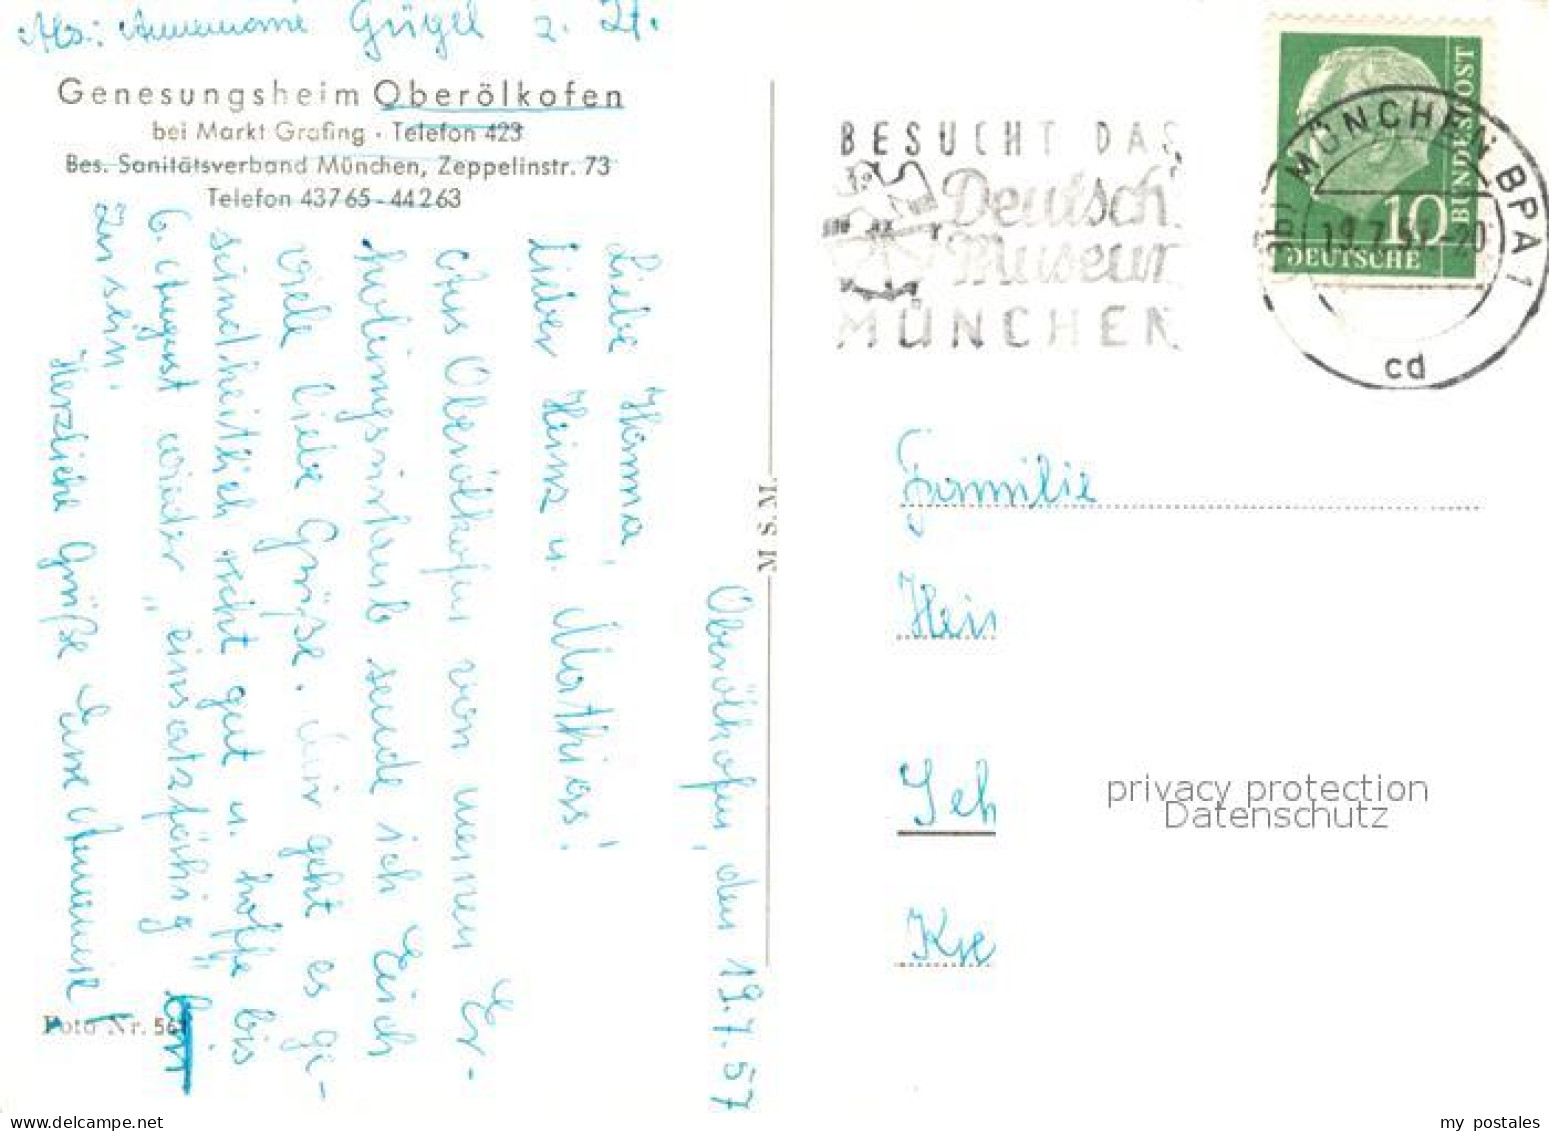 Abs.: Annemarie Gügel z. Zt.
Genesungsheim Oberölkofen
bei Markt Grafing · Telefon 423
Bes. Sanitätsverband München, Zeppelinstr. 73
Telefon 43765 - 44263
Oberölkofen, den 19.7.57
Liebe Hanna!
Lieber Heinz u. Mathias!
Aus Oberölkofen von meinem Er-
holungsurlaub sende ich Euch
viele liebe Grüße. Mir geht es ge-
sundheitlich recht gut u. hoffe bis
6. August wieder "einsatzfähig"
zu sein.
Herzliche Grüße Eure Annemarie!
Foto Nr. 561
M S. M.
BESUCHT DAS
Deutsche
Museum
MÜNCHEN
MÜNCHEN BPA 1
19.7.57.-20
cd
10
DEUTSCHE
BUNDESPOST
Familie
Hein
Seh
Kre
privacy protection
Datenschutz
my postales